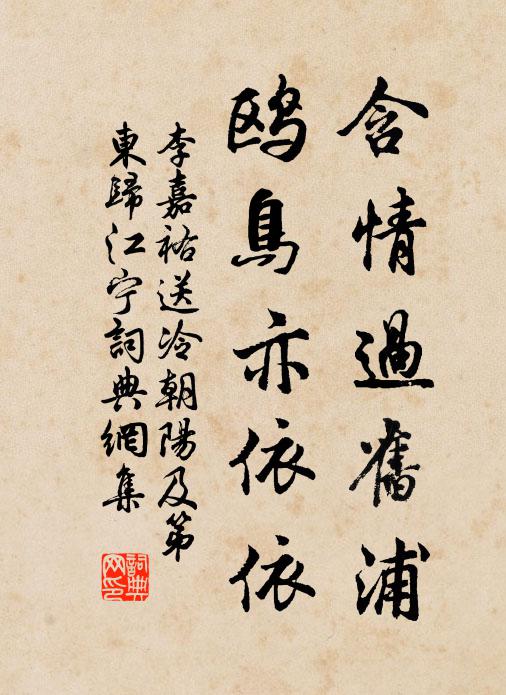 含情過舊浦
鸥鳥亦依依
李嘉祐送冷朝陽及第
東歸江宁詞典網集
詞典
网印